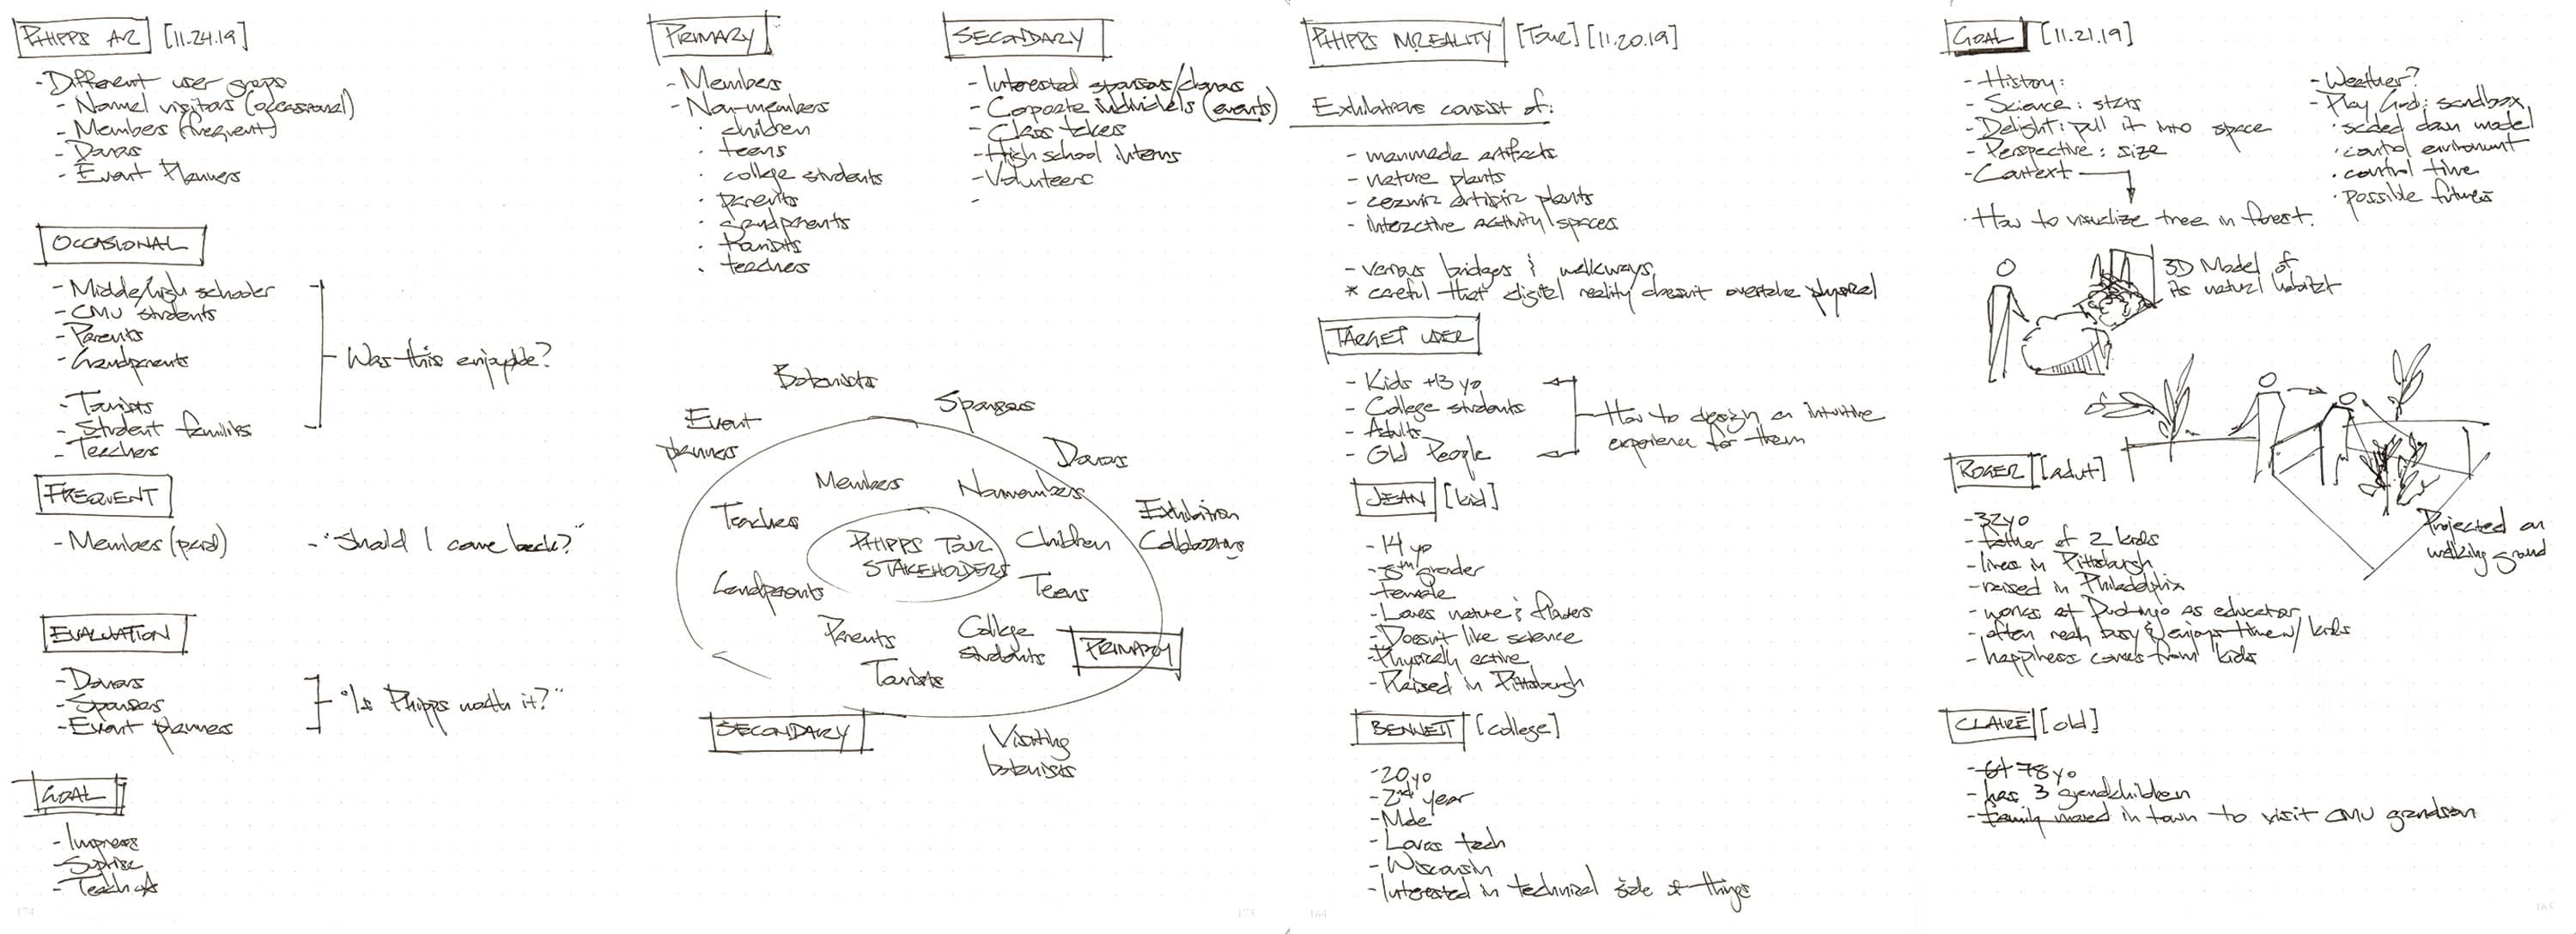 PHIPPS AR [11.24.19]
- Different user groups
- Normal visitors (occasional)
- Members (frequent)
- Donors
- Event Planners
OCCASIONAL
- Middle/high schooler
- CMU students
- Parents
- Grandparents
- Tourists
- Student families
- Teachers
Was this enjoyable?
FREQUENT
- Members (paid)
- "Should I come back?"
EVALUATION
- Donors
- Sponsors
- Event planners
"Is Phipps worth it?"
GOAL
- Impress
- Suprise
- Teach
174
PRIMARY
- Members
- Non-members
· children
· teens
· college students
· parents
· grandparents
· tourists
· teachers
SECONDARY
- Interested sponsors/donors
- Corporate individels (events)
- Class takers
- High school interns
- Volunteers
-
Botanists
Event planners
Sponsors
Donors
Members
Nonmembers
Teachers
Exhibition
Collaborators
PHIPPS TOUR
STAKEHOLDERS
Children
Grandparents
Teens
Parents
College
students
PRIMARY
Tourists
SECONDARY
Visiting
botanists
175
PHIPPS M.REALITY [Tour] [11.20.19]
Exhibitions consist of:
- manmade artifacts
- nature plants
- artistic plants
- interactive activity spaces
- various bridges & walkways
* careful that digital reality doesn't overtake physical
TARGET USER
- Kids +13 yo
- College students
- Adults
- Old People
How to design an intuitive
experience for them
JEAN [kid]
- 14 yo
- 8th grader
- female
- Loves nature & flowers
- Doesn't like science
- Physically active
- Raised in Pittsburgh
BENNETT [college]
- 20 yo
- 2nd year
- Male
- Loves tech
- Wisconsin
- Interested in technical side of things
164
GOAL [11.21.19]
- History:
- Science: stats
- Delight: pull it into space
- Perspective: size
- Context
· How to visualize tree in forest.
- Weather?
- Play God: sandbox
· scaled down model
· control environment
· control time
· possible futures
3D Model of
its natural habitat
Projected on
walking ground
ROGER [adult]
- 32yo
- father of 2 kids
- lives in Pittsburgh
- raised in Philadelphia
- works at Duolingo as educator
- often really busy & enjoys time w/ kids
- happiness comes from kids
CLAIRE [old]
- 64 78 yo
- has 3 grandchildren
- family moved in town to visit CMU grandson
165